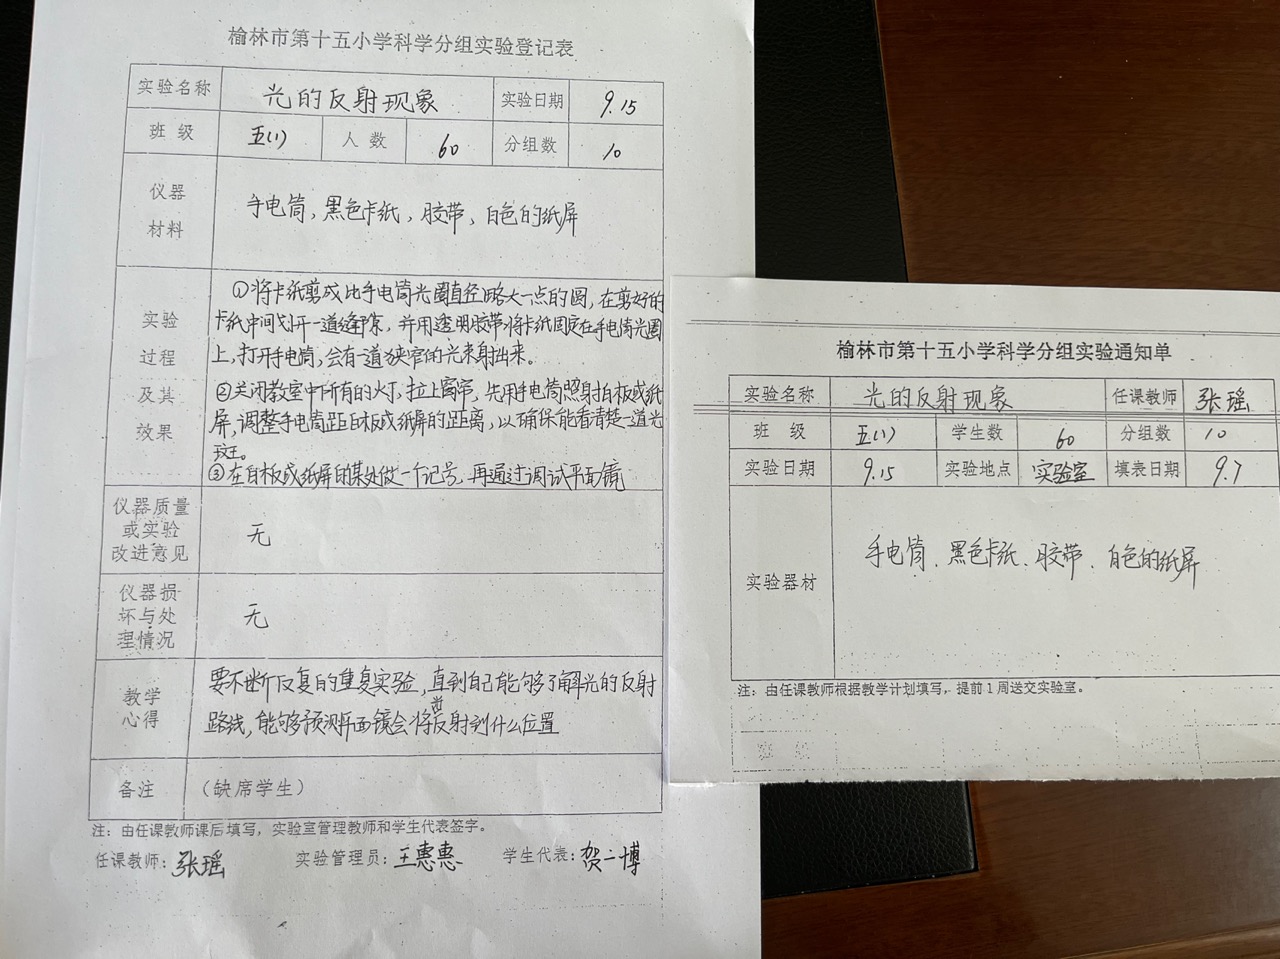 榆林市第十五小学科学分组实验登记表
实验名称 光的反射现象 实验日期 9.15
班级 五(1) 人数 60 分组数 10
仪器
材料
手电筒，黑色卡纸，胶带，白色的纸屏
实验
过程
及其
效果
①将卡纸剪成比手电筒光圈直径略大一点的圆，在剪好的
卡纸中间划开一道缝隙，并用透明胶带将卡纸固定在手电筒光圈
上，打开手电筒，会有一道狭窄的光束射出来。
②关闭教室中所有的灯，拉上窗帘，先用手电筒照射白板或纸
屏，调整手电筒距白板或纸屏的距离，以确保能看清楚一道光
斑。
③在白板或纸屏的某处做一个记号，再通过调试平面镜
仪器质量
或实验
改进意见
无
仪器损
坏与处
理情况
无
教学
心得
要不断反复的重复实验，直到自己能够了解光的反射
路线，能够预测平面镜会将光反射到什么位置
备注 （缺席学生）
注：由任课教师课后填写，实验室管理教师和学生代表签字。
任课教师：张瑶 实验管理员：王惠惠 学生代表：贺一博
榆林市第十五小学科学分组实验通知单
实验名称 光的反射现象 任课教师 张瑶
班级 五(1) 学生数 60 分组数 10
实验日期 9.15 实验地点 实验室 填表日期 9.7
实验器材 手电筒、黑色卡纸、胶带、白色的纸屏
注：由任课教师根据教学计划填写，提前1周送交实验室。